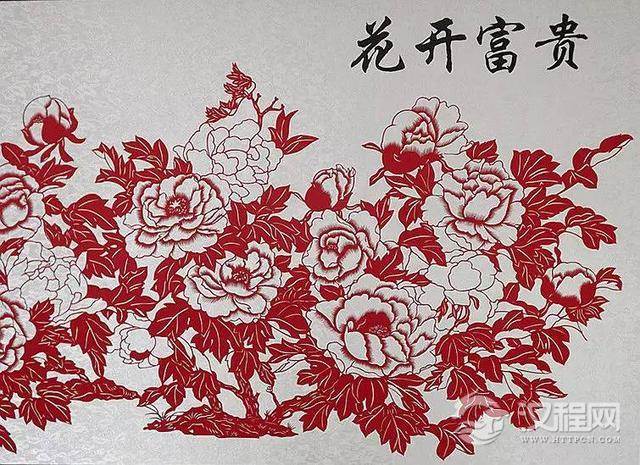 花开富贵
汉程网
WWW.HTTPCN.COM